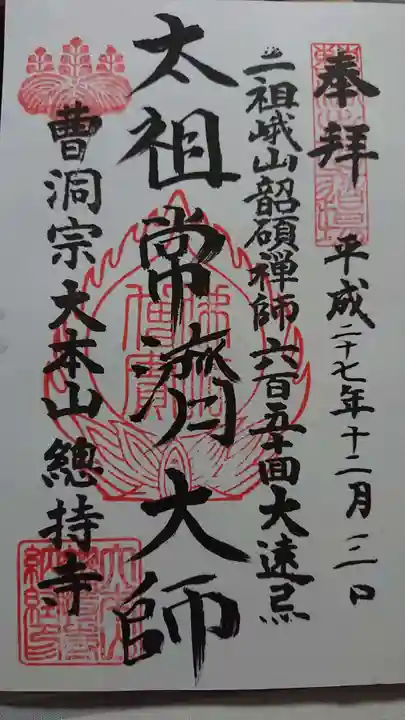 奉拝
平成二十七年十二月三日
二祖峨山韶碩禅師六百五十回大遠忌
太祖常濟大師
曹洞宗大本山總持寺
佛法僧寶